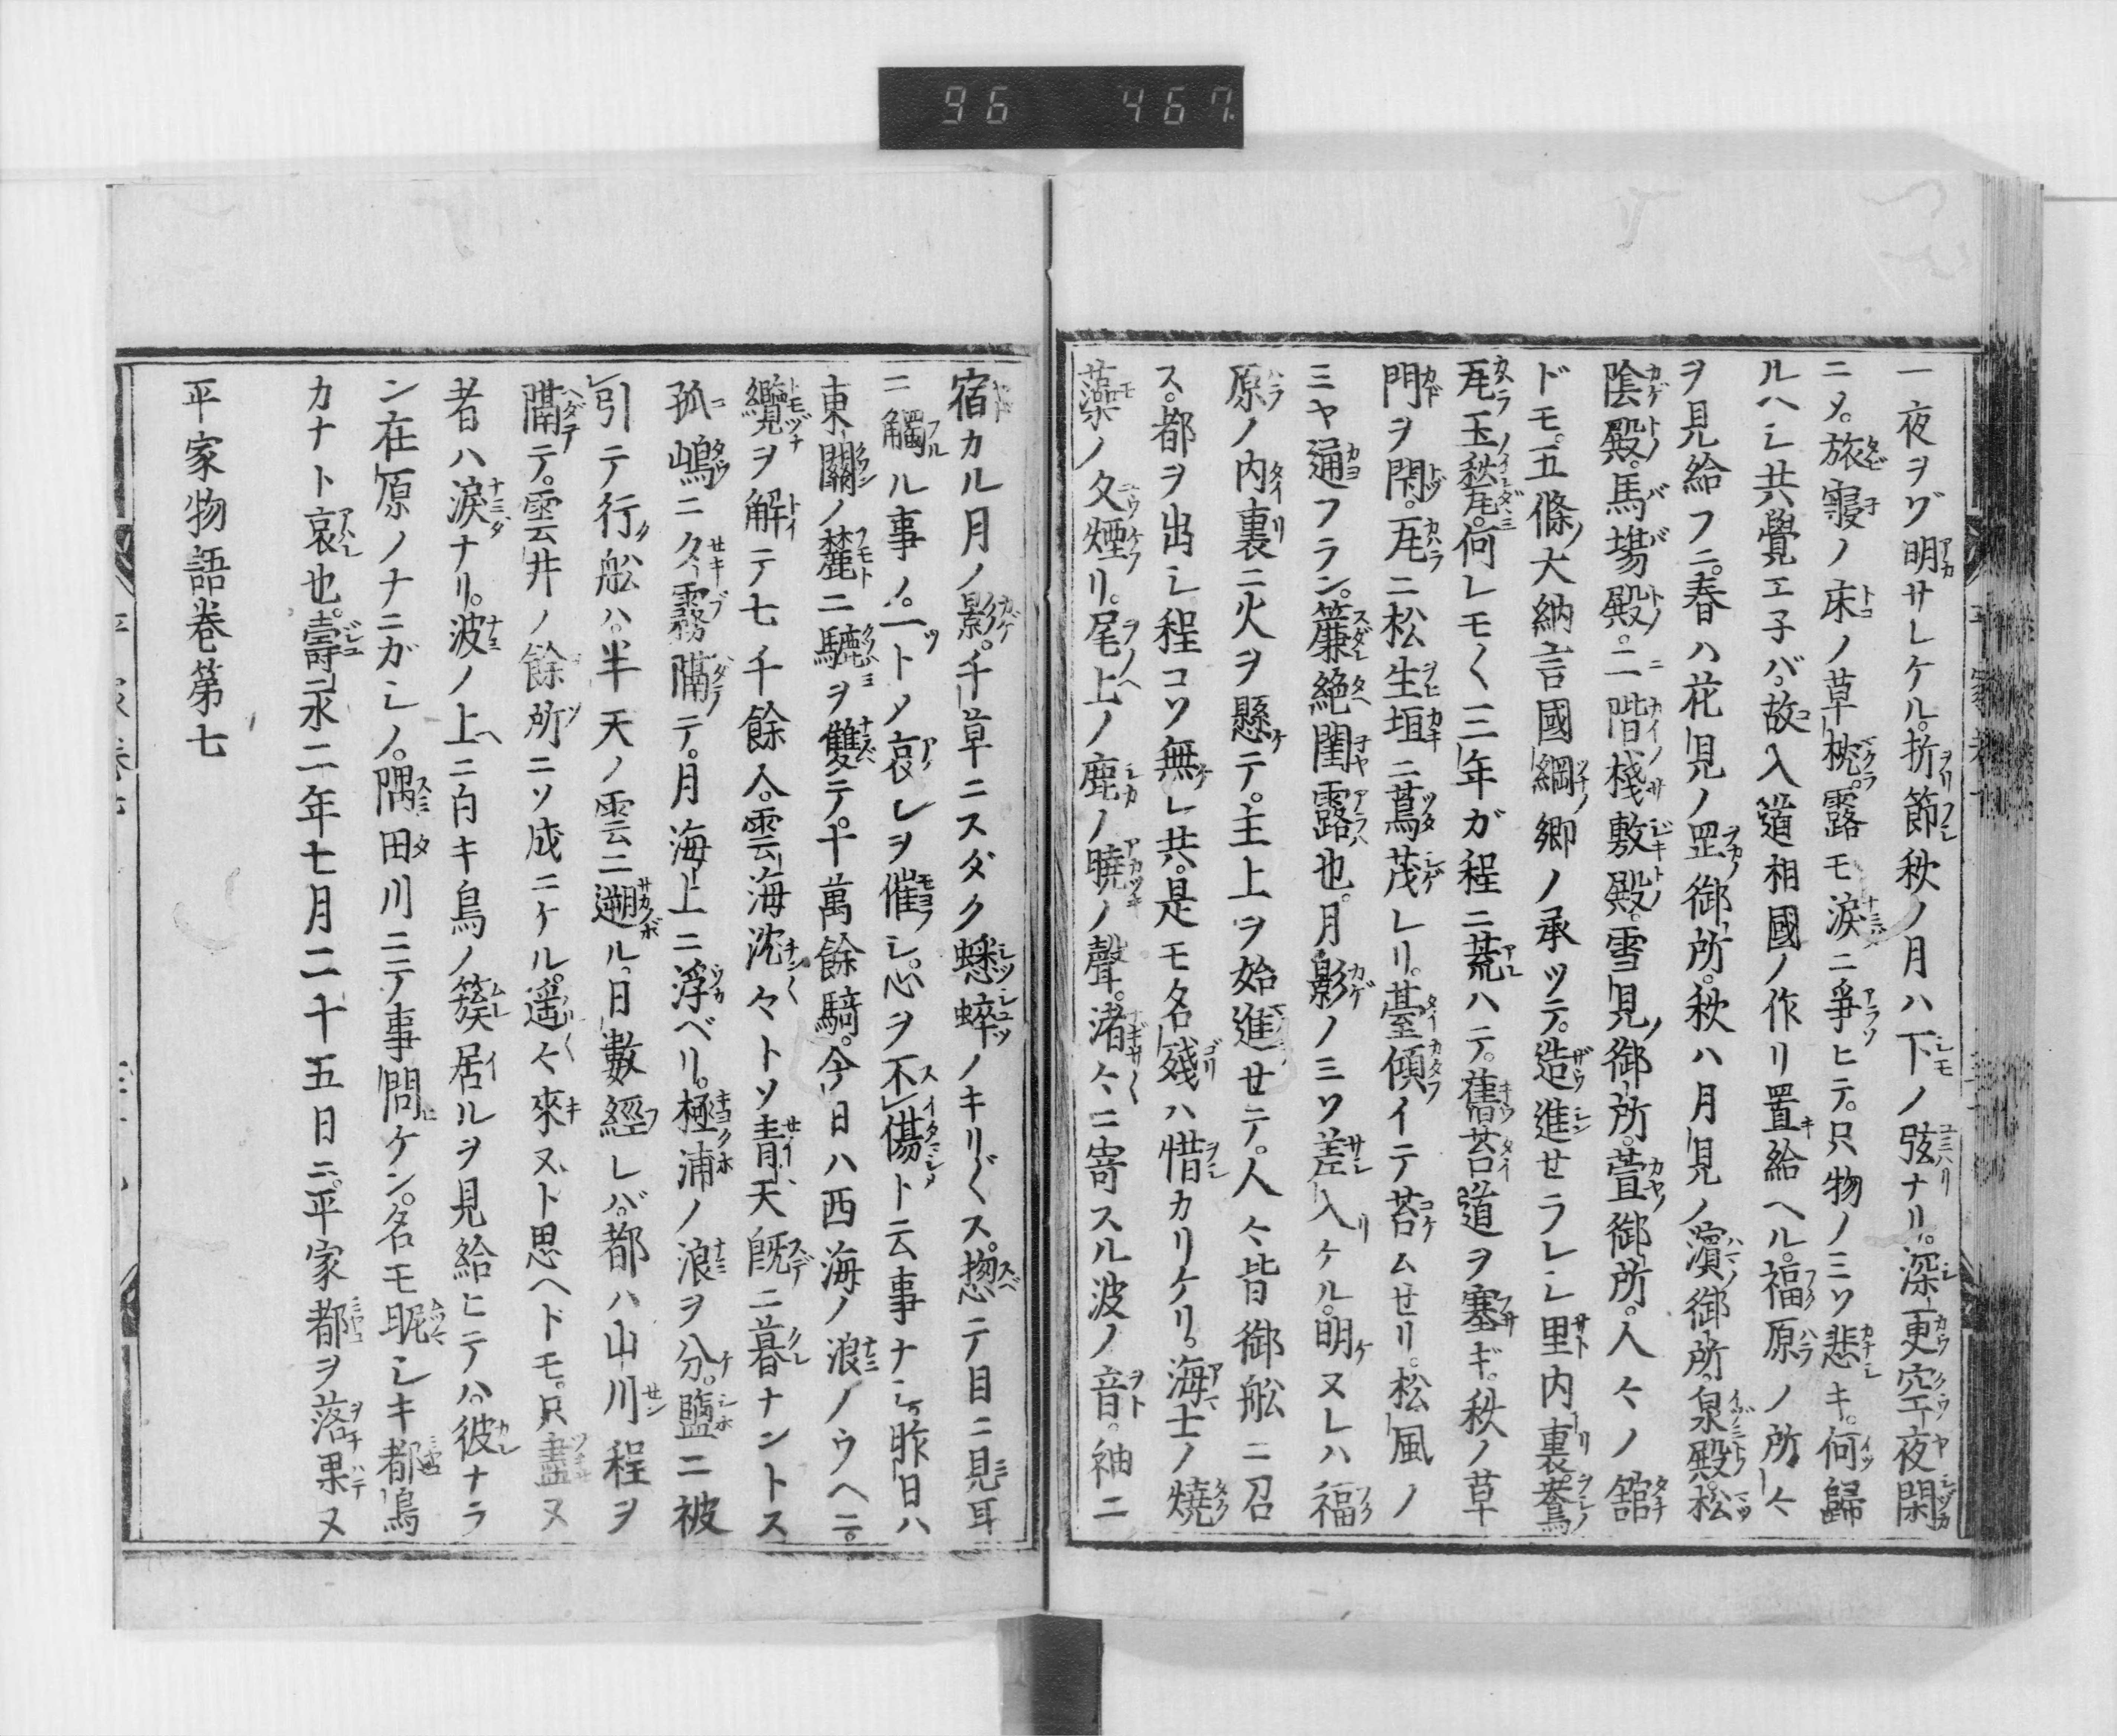 96 467.
一夜ヲゾ明サレケル。折節秋ノ月ハ下ノ弦ナリ。深更空夜閑
ニメ。旅寝ノ床ノ草枕。露モ涙ニ爭ヒテ。只物ノミソ悲キ。何歸
ルヘシ共覺エ子バ。故入道相國ノ作リ置給ヘル。福原ノ所々
ヲ見給フニ。春ハ花見ノ罡御所。秋ハ月見ノ濱御所。泉殿。松
陰殿。馬場殿。二階棧敷殿。雪見御所。萱御所。人々ノ舘
ドモ。五條大納言國綱卿ノ承ツテ。造進セラレシ里内裏。鴦
瓦玉甃。何レモ〱三年ガ程ニ荒ハテ。舊苔道ヲ塞ギ。秋ノ草
門ヲ閇。瓦ニ松生垣ニ蔦茂レリ。臺傾イテ苔ムセリ。松風ノ
ミヤ通フラン。簾絶閨露也。月影ノミソ差入ケル。明ヌレハ福
原ノ内裏ニ火ヲ懸テ。主上ヲ始進セテ。人々皆御舩ニ召
ス。都ヲ出シ程コソ無レ共。是モ名殘ハ惜カリケリ。海士ノ燒
藻ノ夕煙リ。尾上ノ鹿ノ曉ノ聲。渚々ニ寄スル波ノ音。袖ニ
宿カル月ノ影。千草ニスダク蟋蟀ノキリ〲ス。惣テ目ニ見耳
ニ觸ル事ノ。一トメ哀レヲ催シ。心ヲ不傷ト云事ナシ。昨日ハ
東關ノ麓ニ轡ヲ雙テ。十萬餘騎。今日ハ西海ノ浪ノウヘニ。
纜ヲ解テ七千餘人。雲海沈々トソ青天既ニ暮ナントス
孤嶋ニ夕霧隔テ。月海上ニ浮ベリ。極浦ノ浪ヲ分。鹽ニ被
引テ行舩ハ。半天ノ雲ニ遡ル。日數經レバ。都ハ山川程ヲ
隔テ。雲井ノ餘所ニソ成ニケル。遥々來ヌト思ヘドモ。只盡ヌ
者ハ涙ナリ。波ノ上ニ白キ鳥ノ簇居ルヲ見給ヒテハ。彼ナラ
ン在原ノナニガシノ。隅田川ニテ事問ケン。名モ昵シキ都鳥
カナト哀也。壽永二年七月二十五日ニ。平家都ヲ落果ヌ
平家物語卷第七